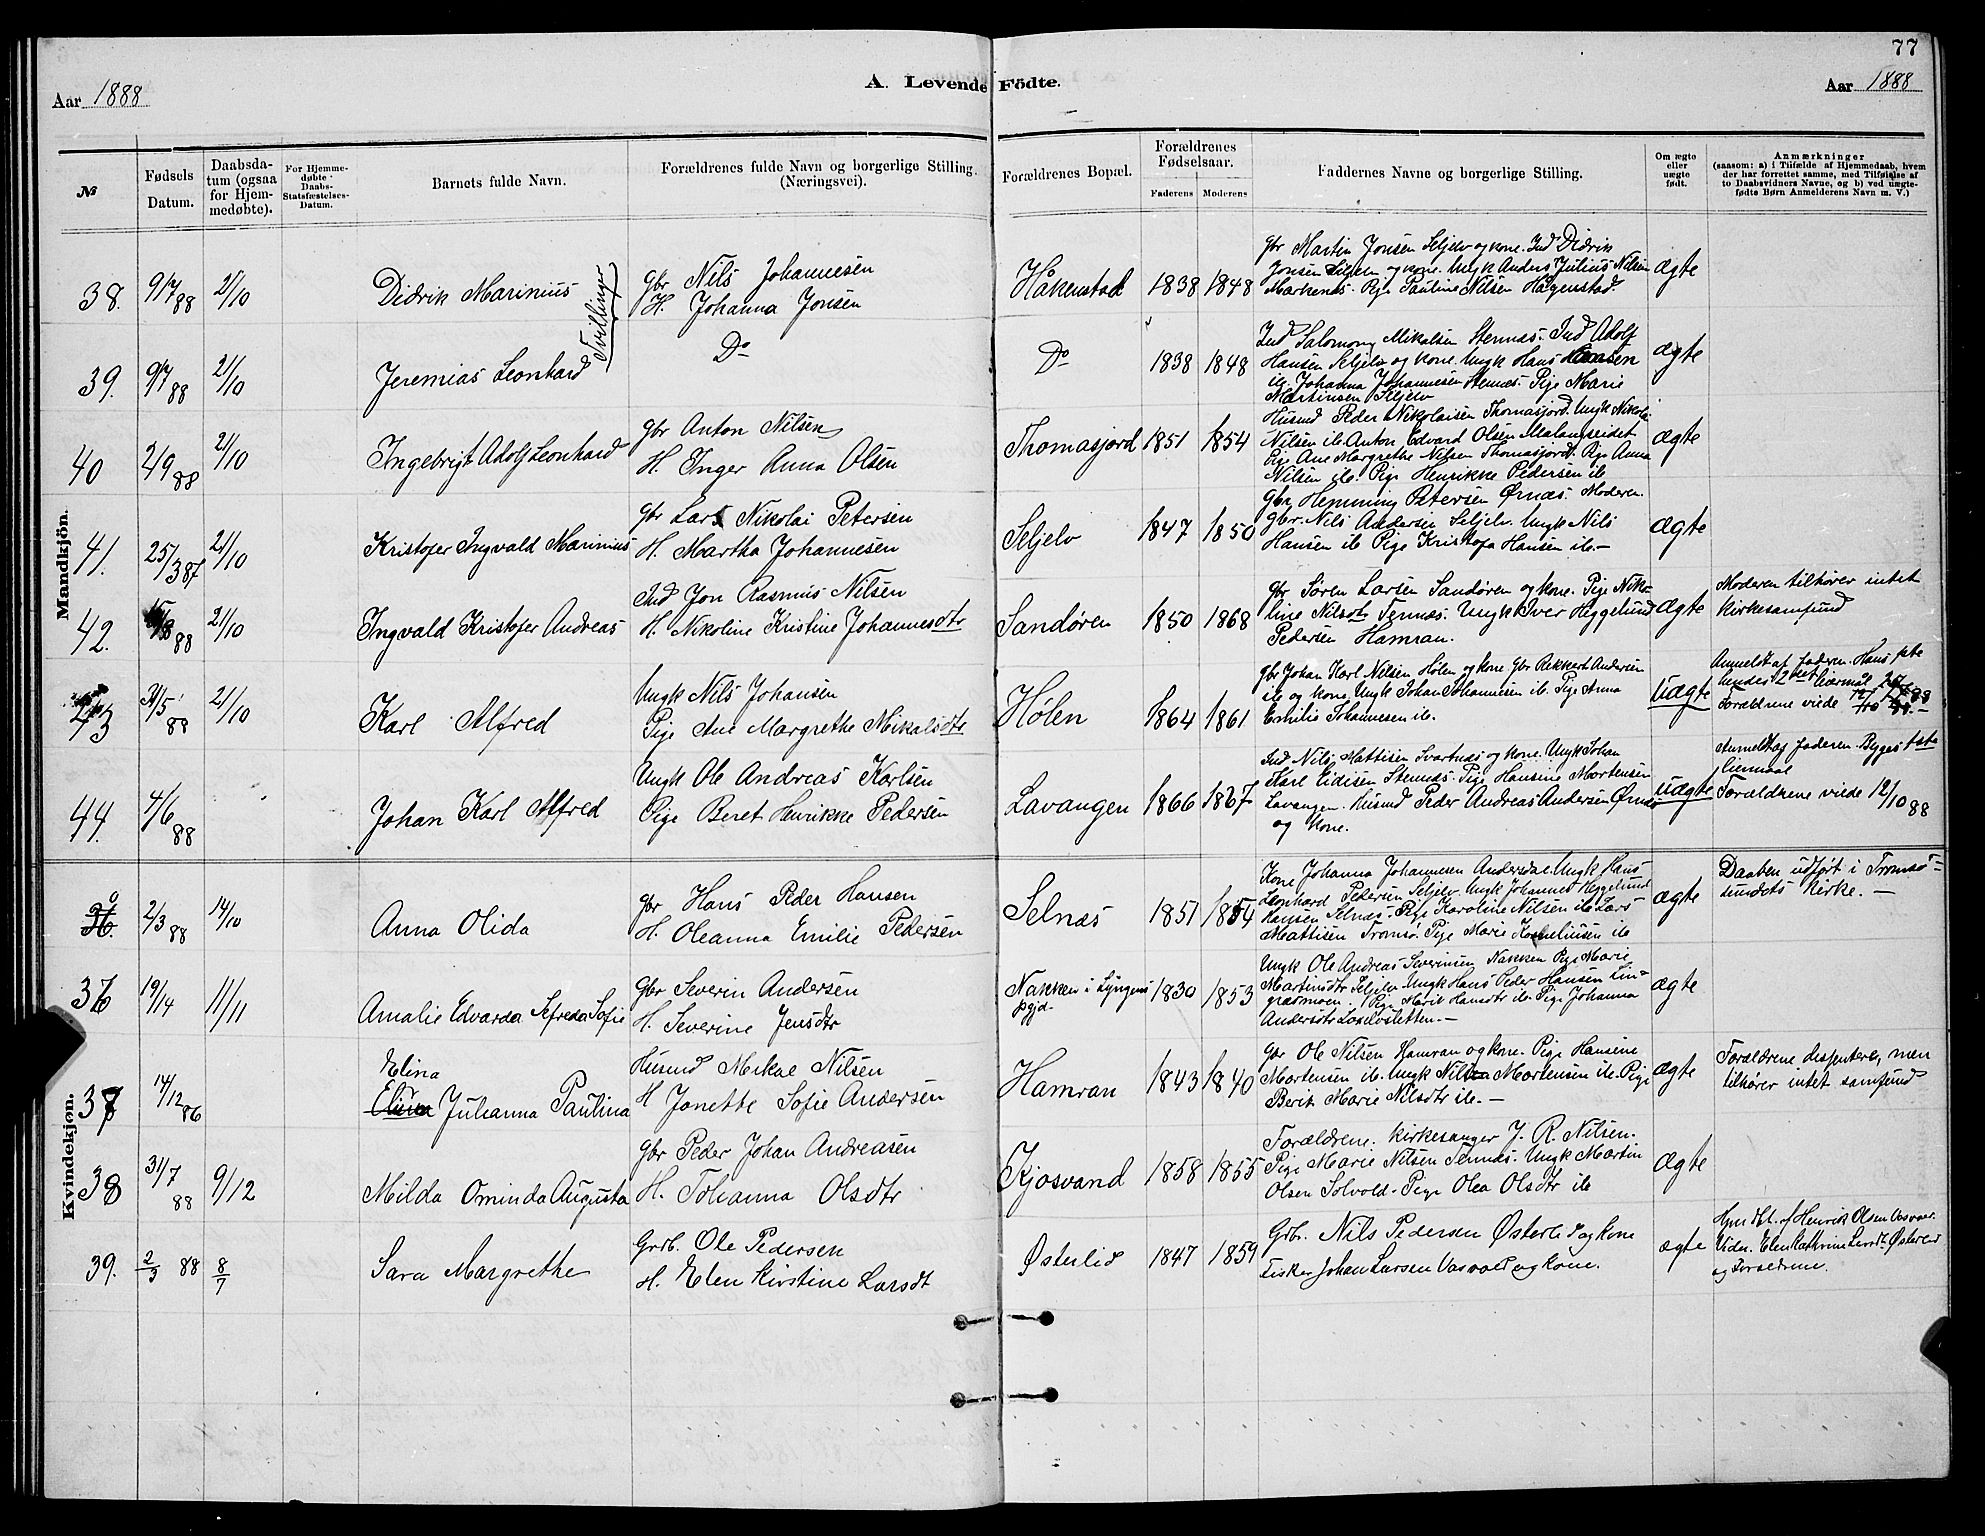 77
Aar 1888
A. Levende Födte.
Aar 1888
№
Fødsels Datum.
Daabsdatum (ogsaa for Hjemmedøbte).
For Hjemmedøbte Daabs-Statsfæstelses-Datum.
Barnets fulde Navn.
Forældrenes fulde Navn og borgerlige Stilling. (Næringsvei).
Forældrenes Bopæl.
Forældrenes Fødselsaar.
Faderens
Moderens
Faddernes Navne og borgerlige Stilling.
Om ægte eller uægte født.
Anmærkninger
(saasom: a) i Tilfælde af Hjemmedaab, hvem der har forrettet samme, med Tilføielse af to Daabsvidners Navne, og b) ved uægtefødte Børn Anmelderens Navn m. V.)
Mandkjön.
38. 9/7 88 21/10 Didrik Marinius
Tvillinger
Gbr Nils Johannesen
H. Johanna Jonsen
Håkenstad 1838 1848
Gbr Martin Jonsen Seljelv og kone. Ind Didrik
Jonsen og kone. Ungk Anders Julius Nilsen
Markenes. Pige Pauline Nilsen Hagenstad.
ægte
39. 9/7 88 21/10 Jeremias Leonhard
Do
Do 1838 1848
Ind Salomon Mikalsen Stennæs. Ind Adolf
Hansen Seljelv og kone. Ungk Hans Hansen
ib. Johanna Johannesen Stennæs. Pige Marie
Martinsen Seljelv
ægte
40 2/9 88 21/10 Ingebrigt Adolf Leonhard
Gbr Anton Nilsen
H. Inger Anna Olsen
Thomasjord 1851 1854
Husmd Peder Nikolaisen Thomasjord. Ungk Nikolai
Nilsen ib. Anton Edvard Olsen Malangseidet
Pige Ane Margrethe Nilsen Thomasjord. Pige Anna
Nilsen ib. Pige Henrikke Pedersen ib
ægte
41. 25/3 87 21/10 Kristofer Ingvald Marinius
Gbr Lars Nikolai Petersen
H. Martha Johannesen
Seljelv 1847 1850
Gbr Hemming Petersen Ørnæs. Moderen.
Gbr. Nils Andersen Seljelv. Ungk Nils
Hansen ib Pige Kristofa Hansen ib.—
ægte
42. 88 21/10 Ingvald Kristofer Andreas
Ind Jon Rasmus Nilsen
H. Nikoline Kristine Johannesdtr
Sandøren 1850 1868
Gbr Søren Larsen Sandøren og kone. Pige Niko-
line Nilsdtr Sennæs. Ungk Iver Heggelund
Pedersen Hamran.
ægte
Moderen tilhører intet
kirkesamfund
43 31/5 88 21/10 Karl Alfred
Ungk Nils Johansen
Pige Ane Margrethe Mikalsdtr
Hølen 1864 1861
Gbr Johan Karl Nilsen Hølen og kone. Gbr Rekkert Andersen
ib og kone. Ungk Johan Johannesen ib. Pige Anna
Emilie Johannesen ib.
uægte
Anmeldt af faderen. Hans 1ste
hendes 2det leiermål.
Forældrene viede
44. 4/6 88 Johan Karl Alfred
Ungk Ole Andreas Karlsen
Pige Beret Henrikke Pedersen
Lavangen 1866 1867
Ind Nils Mattisen Svartnæs og kone. Ungk Johan
Karl Eidisen Stennæs. Pige Hansine Mortensen
Lavangen. Husmd Peder Andreas Andersen Ørnæs
og kone.
uægte
Anmeldt af faderen. Begges 1ste
liermaal
Forældrene viede 12/10 88
Kvindekjøn.
36. 2/3 88 14/10 Anna Olida
Gbr Hans Peder Hansen
H. Oleanna Emilie Pedersen
Selnæs 1851 1854
Kone Johanna Johannesen Andersdal. Ungk Hans
Leonhard Pedersen Seljelv. Ungk Johannes Heggelund
Hansen Selnæs. Pige Karoline Nilsen ib. Lars
Mattisen Tromsø. Pige Marie Korneliusen ib
ægte
Daaben udført i Tromsø-
sundets kirke.—
36 19/14 11/11 Amalie Edvarda Sefreda Sofie
Gbr Severin Andersen
H. Severine Jensdtr
Nakken i Lyngens
pgjd. 1830 1853
Ungk Ole Andreas Severinsen Nakken Pige Marie
Martinsdtr Seljelv. Ungk Hans Peder Hansen Lin-
græsmoen. Pige Marit Hansdtr ib. Pige Johanna
Andersdtr Lakselvsletten.—
ægte
37 14/12 86 Elina
Julianna Paulina
Husmd Mekal Nilsen
H Jonette Sofie Andersen
Hamran 1843 1840
Gbr Ole Nilsen Hamran og kone. Pige Hansine
Mortensen ib. Ungk Nils Mortensen ib. Pige
Berit Marie Nilsdtr ib.—
ægte
Forældrene dissentere, men
tilhører intet samfund
38 31/7 88 9/12 Milda Ominda Augusta
Gbr Peder Johan Andreasen
H. Johanna Olsdtr
Kjosvand 1858 1855
Forældrene. Kirkesanger J. R. Nilsen.
Pige Marie Nilsen Sennæs. Ungk Martin
Olsen Solvold. Pige Olea Olsdtr ib
ægte
39. 2/3 88 8/7 Sara Margrethe
Grdb. Ole Pedersen
H. Elen Kirstine Larsdt
Østerlid 1847 1859
Grbr. Nils Pedersen Østerlid og kone
Fisker Johan Larsen Vasvold og kone.
ægte
Hjmdbt. af Henrik Olsen Vasvold.
Vidn. Elen Kathrine Larsdt. Østerlid
og Forældrene.